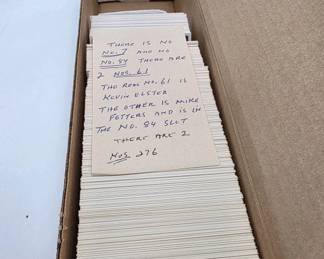 THERE IS NO
NO. 7 AND NO
NO. 84 THERE ARE
2 NOS. 61
THE REAL NO. 61 IS
KEVIN ELSTER
THE OTHER IS MIKE
FETTERS AND IS IN
THE NO. 84 SLOT
THERE ARE 2
NOS 276